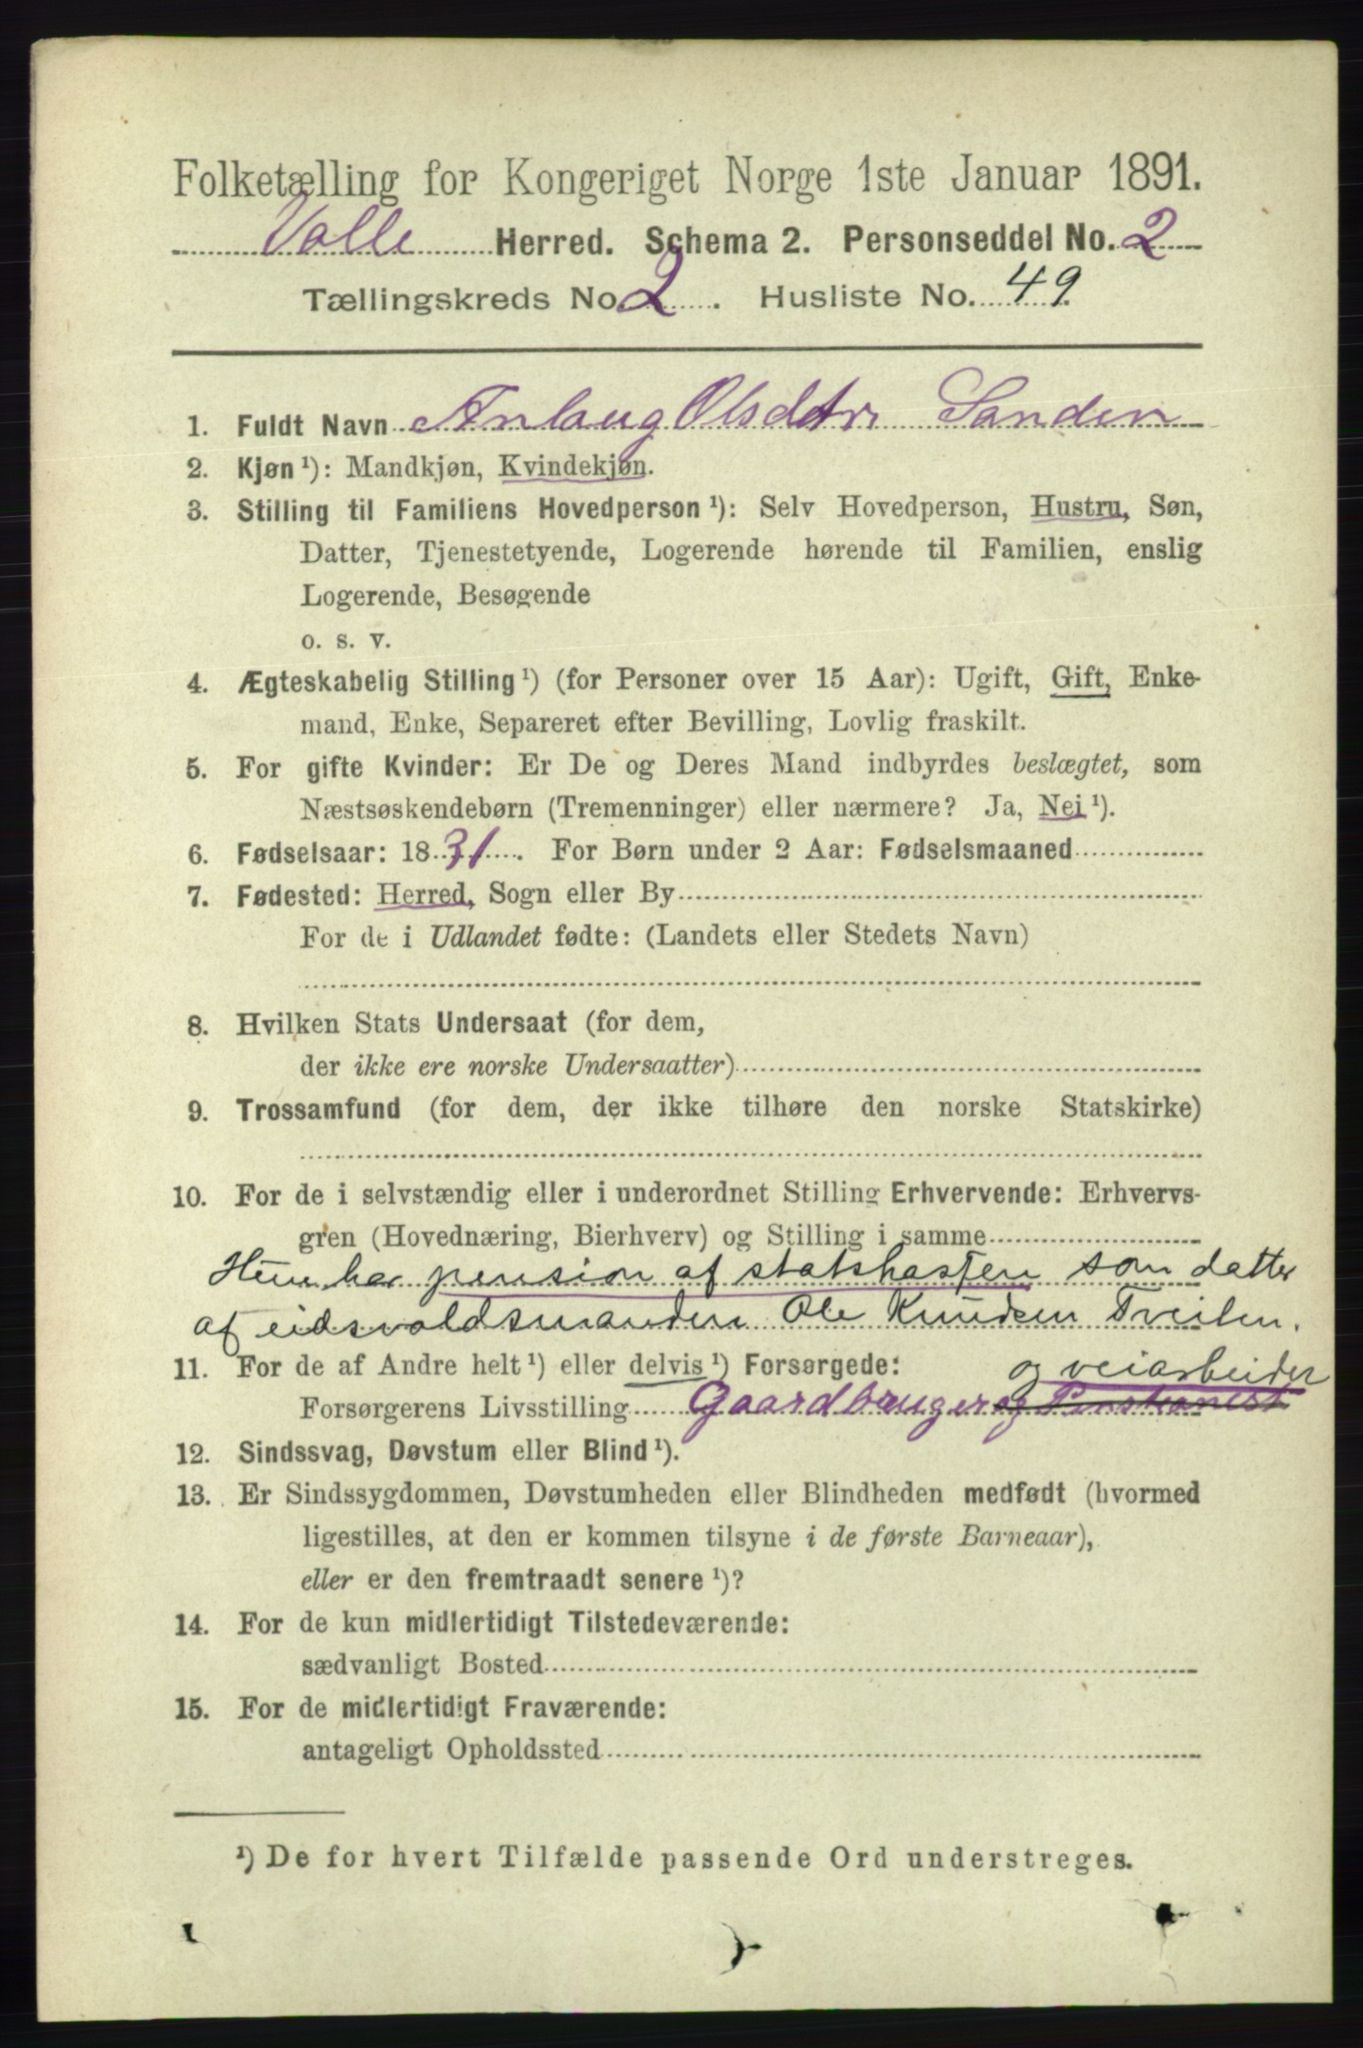 Folketælling for Kongeriget Norge 1ste Januar 1891.
Valle Herred. Schema 2. Personseddel No. 2
Tællingskreds No. 2. Husliste No. 49.
1. Fuldt Navn Anlaug Olsdtr Sanden
2. Kjøn ¹): Mandkjøn, Kvindekjøn.
3. Stilling til Familiens Hovedperson ¹): Selv Hovedperson, Hustru, Søn,
Datter, Tjenestetyende, Logerende hørende til Familien, enslig
Logerende, Besøgende
o. s. v.
4. Ægteskabelig Stilling ¹) (for Personer over 15 Aar): Ugift, Gift, Enke-
mand, Enke, Separeret efter Bevilling, Lovlig fraskilt.
5. For gifte Kvinder: Er De og Deres Mand indbyrdes beslægtet, som
Næstsøskendebørn (Tremenninger) eller nærmere? Ja, Nei ¹).
6. Fødselsaar: 1831. For Børn under 2 Aar: Fødselsmaaned
7. Fødested: Herred, Sogn eller By
For de i Udlandet fødte: (Landets eller Stedets Navn)
8. Hvilken Stats Undersaat (for dem,
der ikke ere norske Undersaatter)
9. Trossamfund (for dem, der ikke tilhøre den norske Statskirke)
10. For de i selvstændig eller i underordnet Stilling Erhvervende: Erhvervs-
gren (Hovednæring, Bierhverv) og Stilling i samme
Hun har pension af statskassen som datter
af eidsvoldsmanden Ole Knudsen Tveiten.
11. For de af Andre helt ¹) eller delvis ¹) Forsørgede: og veiarbeider
Forsørgerens Livsstilling Gaardbruger og Pensionist
12. Sindssvag, Døvstum eller Blind ¹).
13. Er Sindssygdommen, Døvstumheden eller Blindheden medfødt (hvormed
ligestilles, at den er kommen tilsyne i de første Barneaar),
eller er den fremtraadt senere ¹)?
14. For de kun midlertidigt Tilstedeværende:
sædvanligt Bosted
15. For de midlertidigt Fraværende:
antageligt Opholdssted
¹) De for hvert Tilfælde passende Ord understreges.